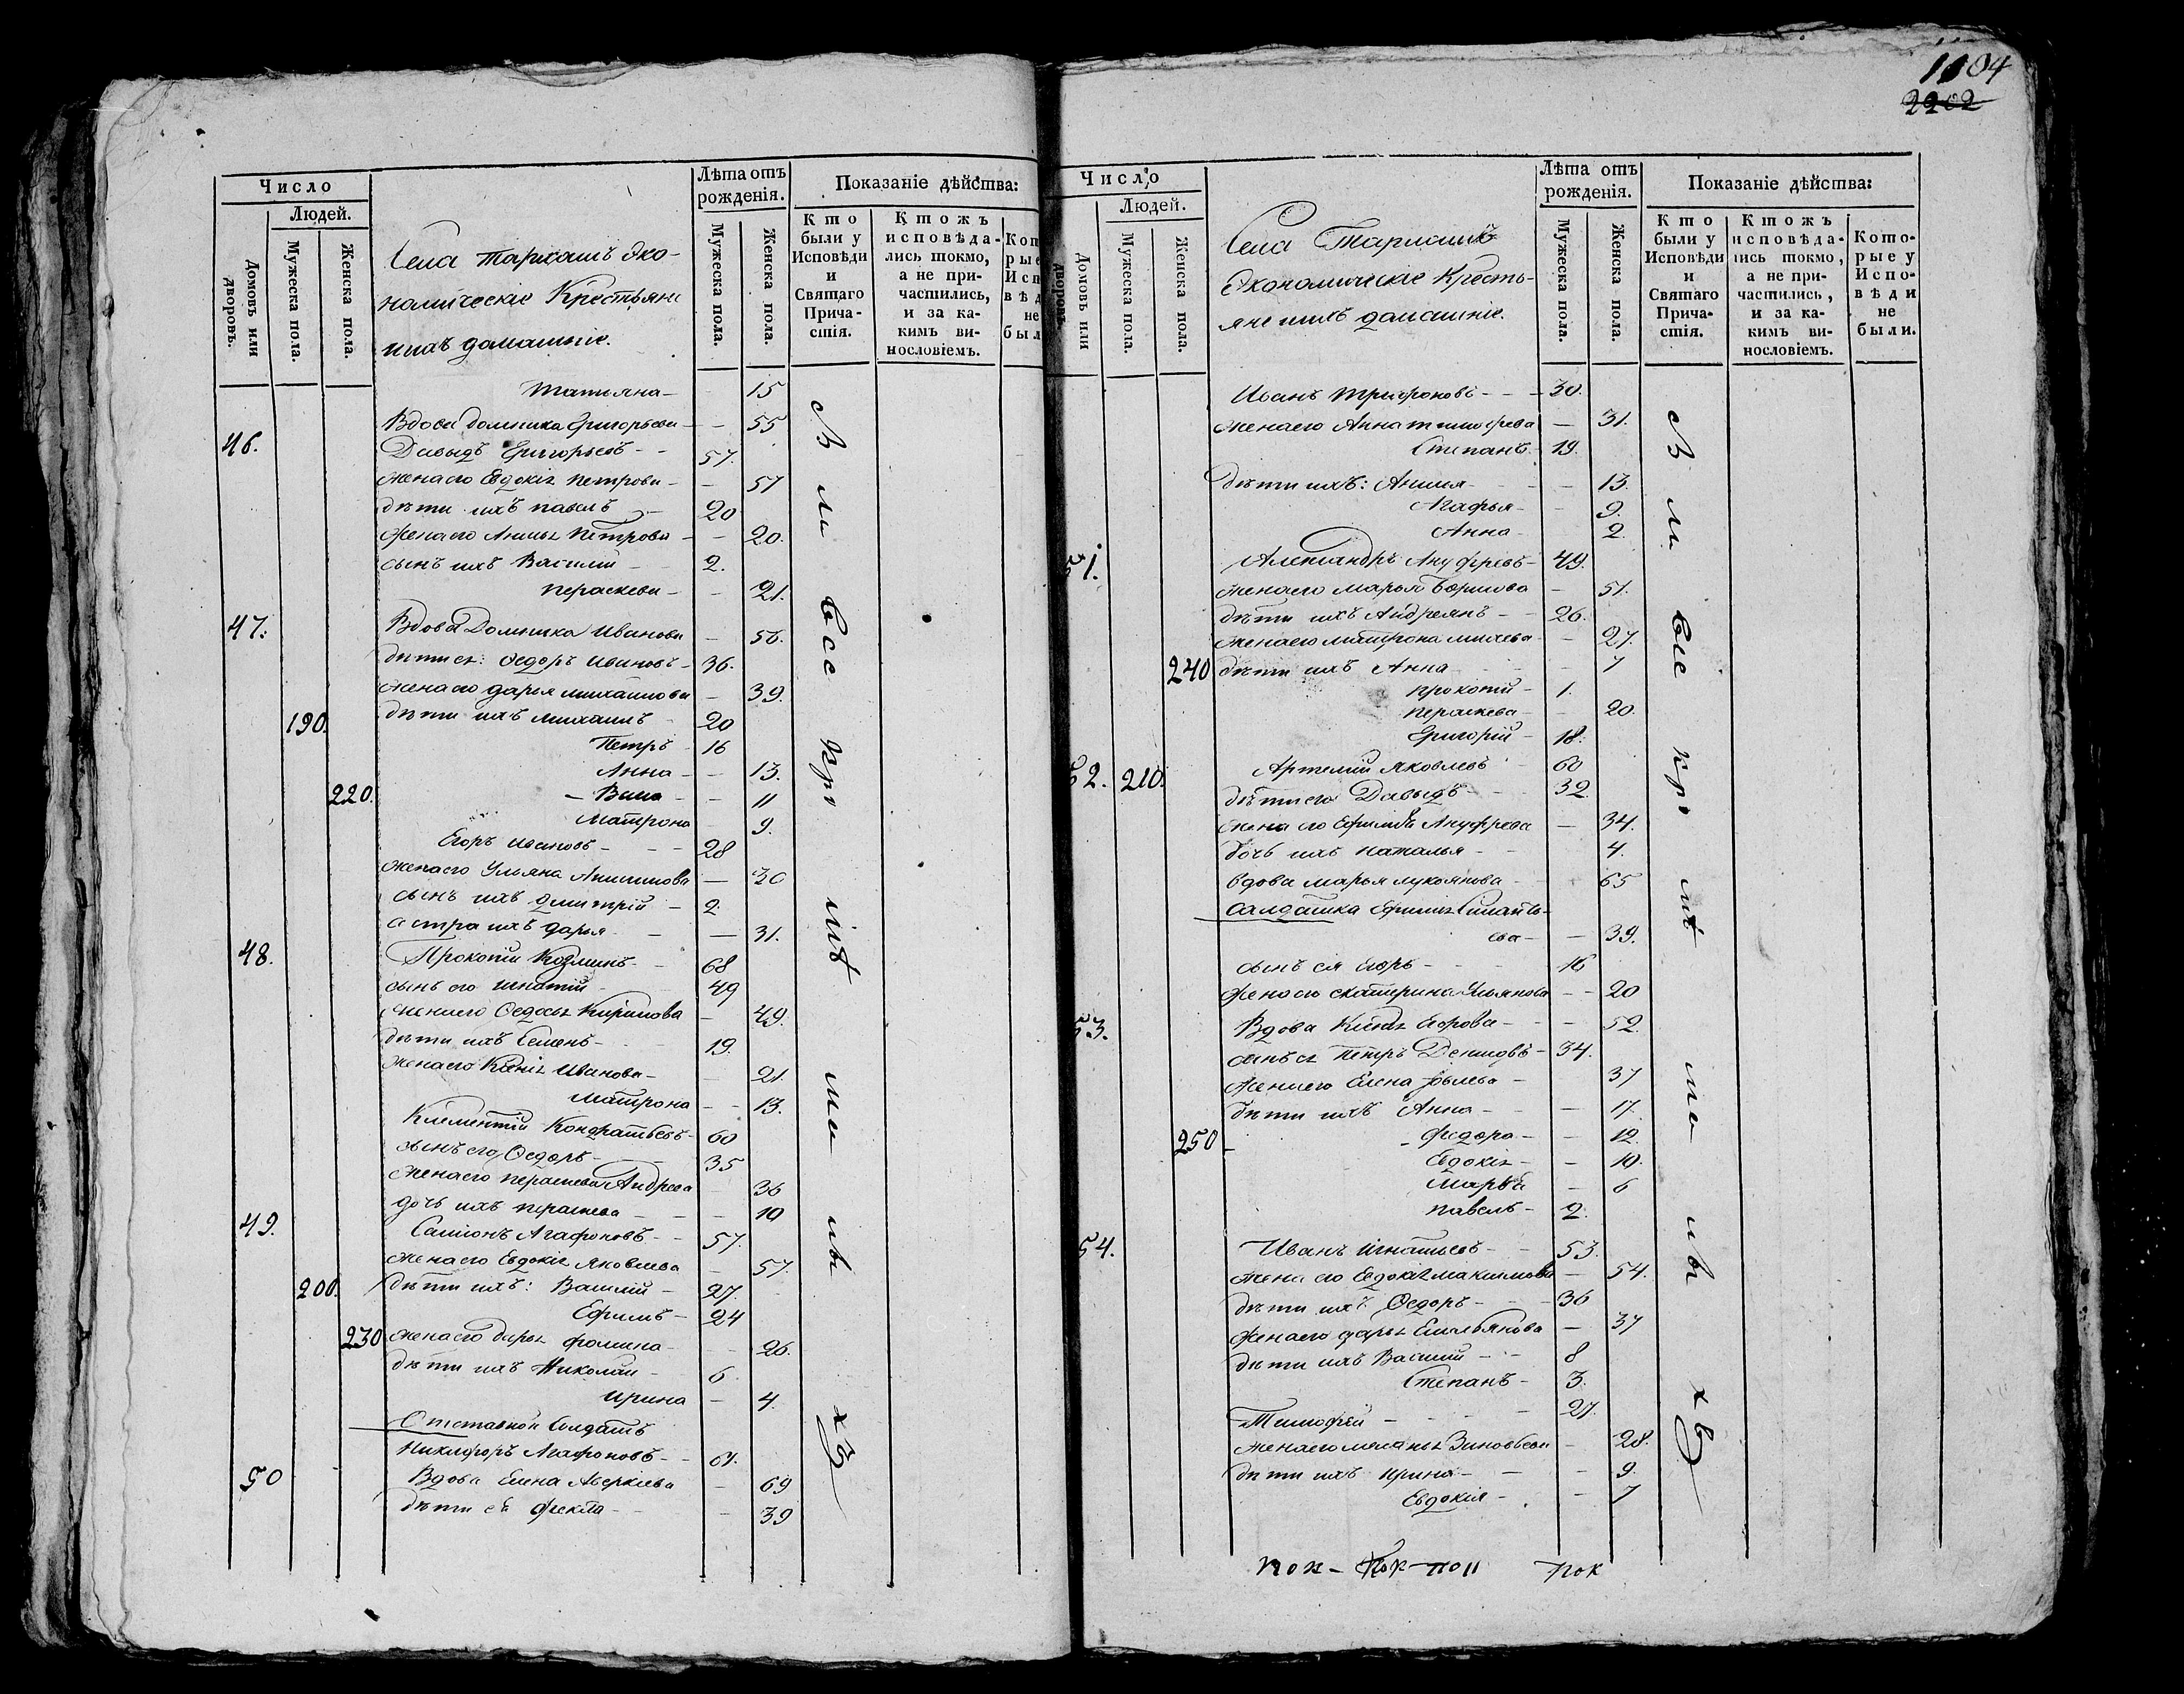 1104
2202
Число
Людей.
Домовъ или дворовъ.
Мужеска пола.
Женска пола.
Села Тархашъ Эко-
номическіе Крестьяне
ихъ домашніе.
Лѣта отъ рожденія.
Мужеска пола.
Женска пола.
Показаніе дѣйства:
Кто были у Исповѣди и Святаго Прича-стія.
Ктожъ исповѣда-лись токмо, а не при-частились, и за ка-кимъ ви-нословіемъ.
Татьяна - 15
Вдова Домника Григорьева - 55
46. Давыдъ Григорьевъ - 57.
жена его Евдокія Петрова - 57
дѣти ихъ Павелъ - 20
жена его Анисья Петрова - 20.
сынъ ихъ Василій - 2.
Пераскева - 21.
47. Вдова Домника Иванова - 56.
дѣти ея: Ѳедоръ Ивановъ - 36.
жена его Дарья Михайлова - 39.
190. дѣти ихъ Михаилъ 20
Петръ - 16
Анна - 13.
220. - - 11
Матрона 9.
Егоръ Ивановъ - 28
жена его Ульяна Анисимова - 30
сынъ ихъ Дмитрій - 2.
сестра ихъ Дарья - 31.
48. Прокопій Козминъ - 68
сынъ его Игнатій 49
жена его Ѳедосья Кирилова - 49.
дѣти ихъ Семенъ - 19.
жена его Ксенія Иванова - 21.
Матрона - 13.
Климентій Кондратьевъ - 60
сынъ его Ѳедоръ - 35
жена его Пераскева Андреева 36
дочь ихъ Пераскева - 10
49. Самсонъ Агафоновъ - 57.
жена его Евдокія Яковлева - 57.
200. дѣти ихъ: Василій - 27.
Ефимъ - 24
230 жена его Дарья Фомина - 26.
дѣти ихъ Николай - 6.
Ирина - 4.
Отставной Солдатъ
Никифоръ Агафоновъ -
50 Вдова Елена Аверкіева - 69
дѣти ея Фекла - 39
Число
Людей.
Домовъ или дворовъ.
Мужеска пола.
Женска пола.
Села Тархашъ
Экономическіе Кресть-
яне ихъ домашніе.
Лѣта отъ рожденія.
Мужеска пола.
Женска пола.
Показаніе дѣйства:
Кто были у Исповѣди и Святаго Прича-стія.
Ктожъ исповѣда-лись токмо, а не при-частились, и за ка-кимъ ви-нословіемъ.
Кото-рые у Испо-вѣди не были.
Иванъ Трифоновъ - - - 30.
жена его Анна Тимофеева - 31.
Степанъ - 19.
дѣти ихъ: Анисья - 13.
Агафья - 9.
Анна - 2.
51. Александръ Ануфревъ - 49.
жена его Марья Борисова - 51.
дѣти ихъ Андреянъ - 26.
жена его Матрона Михеева - 27.
240 дѣти ихъ Анна - 7
Прокопій - 1.
Пераскева - 20.
Григорій - 18.
52. 210. Артемій Яковлевъ - 60
дѣти его Давыдъ - 32.
жена его Ефимья Ануфрева - 34.
дочь ихъ Наталья - 4.
вдова Марья Лукоянова - 65
Салдатка Ефимія Силантье-
ева - 39.
сынъ ея Егоръ - 16
жена его Екатерина Ульянова - 20
53. Вдова Егорова - 52.
сынъ ея Петръ Денисовъ - 34.
жена его Елена - 37
дѣти ихъ Анна - 17.
250 - Федора - 12.
Евдокія - 10.
Марья - 6
Павелъ - 2.
54. Иванъ Игнатьевъ - 53.
жена его Евдокія Максимова - 54.
дѣти ихъ Ѳедоръ - 36
жена его Дарья Емельянова - 37
дѣти ихъ Василій - 8
Степанъ - 3.
Тимофей - 27.
жена его Меланья Зиновьева - 28.
дѣти ихъ Ирина - 9.
Евдокія - 7